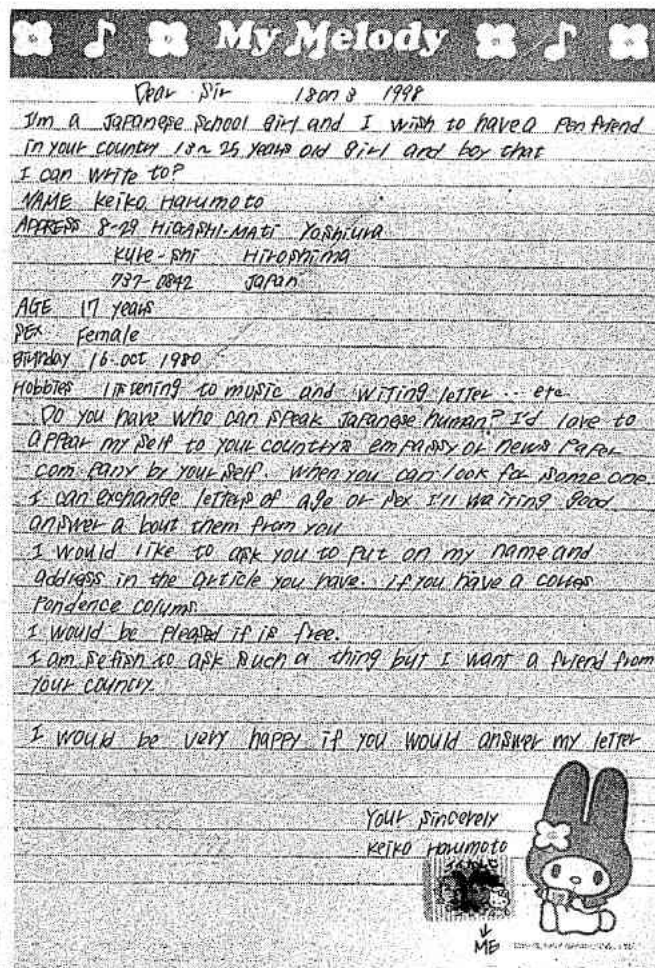 My Melody
Dear Sir 18 on 3 1998
I'm a Japanese school girl and I wish to have a Penfriend
in your country 13~25 years old girl and boy that
I can write to?
NAME keiko Harumoto
ADDRESS 8-29 HIGASHI-MATI Yoshiura
kure-shi Hiroshima
737-0842 Japan
AGE 17 years
SEX Female
Birthday 16 oct 1980
Hobbies listening to music and writing letter ... etc.
Do you have who can speak Japanese human? I'd love to
appear my self to your country's empassy or news Paper
com pany by your self. When you can look for some one.
I can exchange letters of age or sex I'll waiting good
answer a bout them from you
I would like to ask you to put on my name and
address in the article you have. if you have a corres
pondence colums
I would be pleased if is free.
I am sefish to ask such a thing but I want a friend from
your country.
I would be very happy if you would answer my letter
Your sincerely
keiko Harumoto
ME